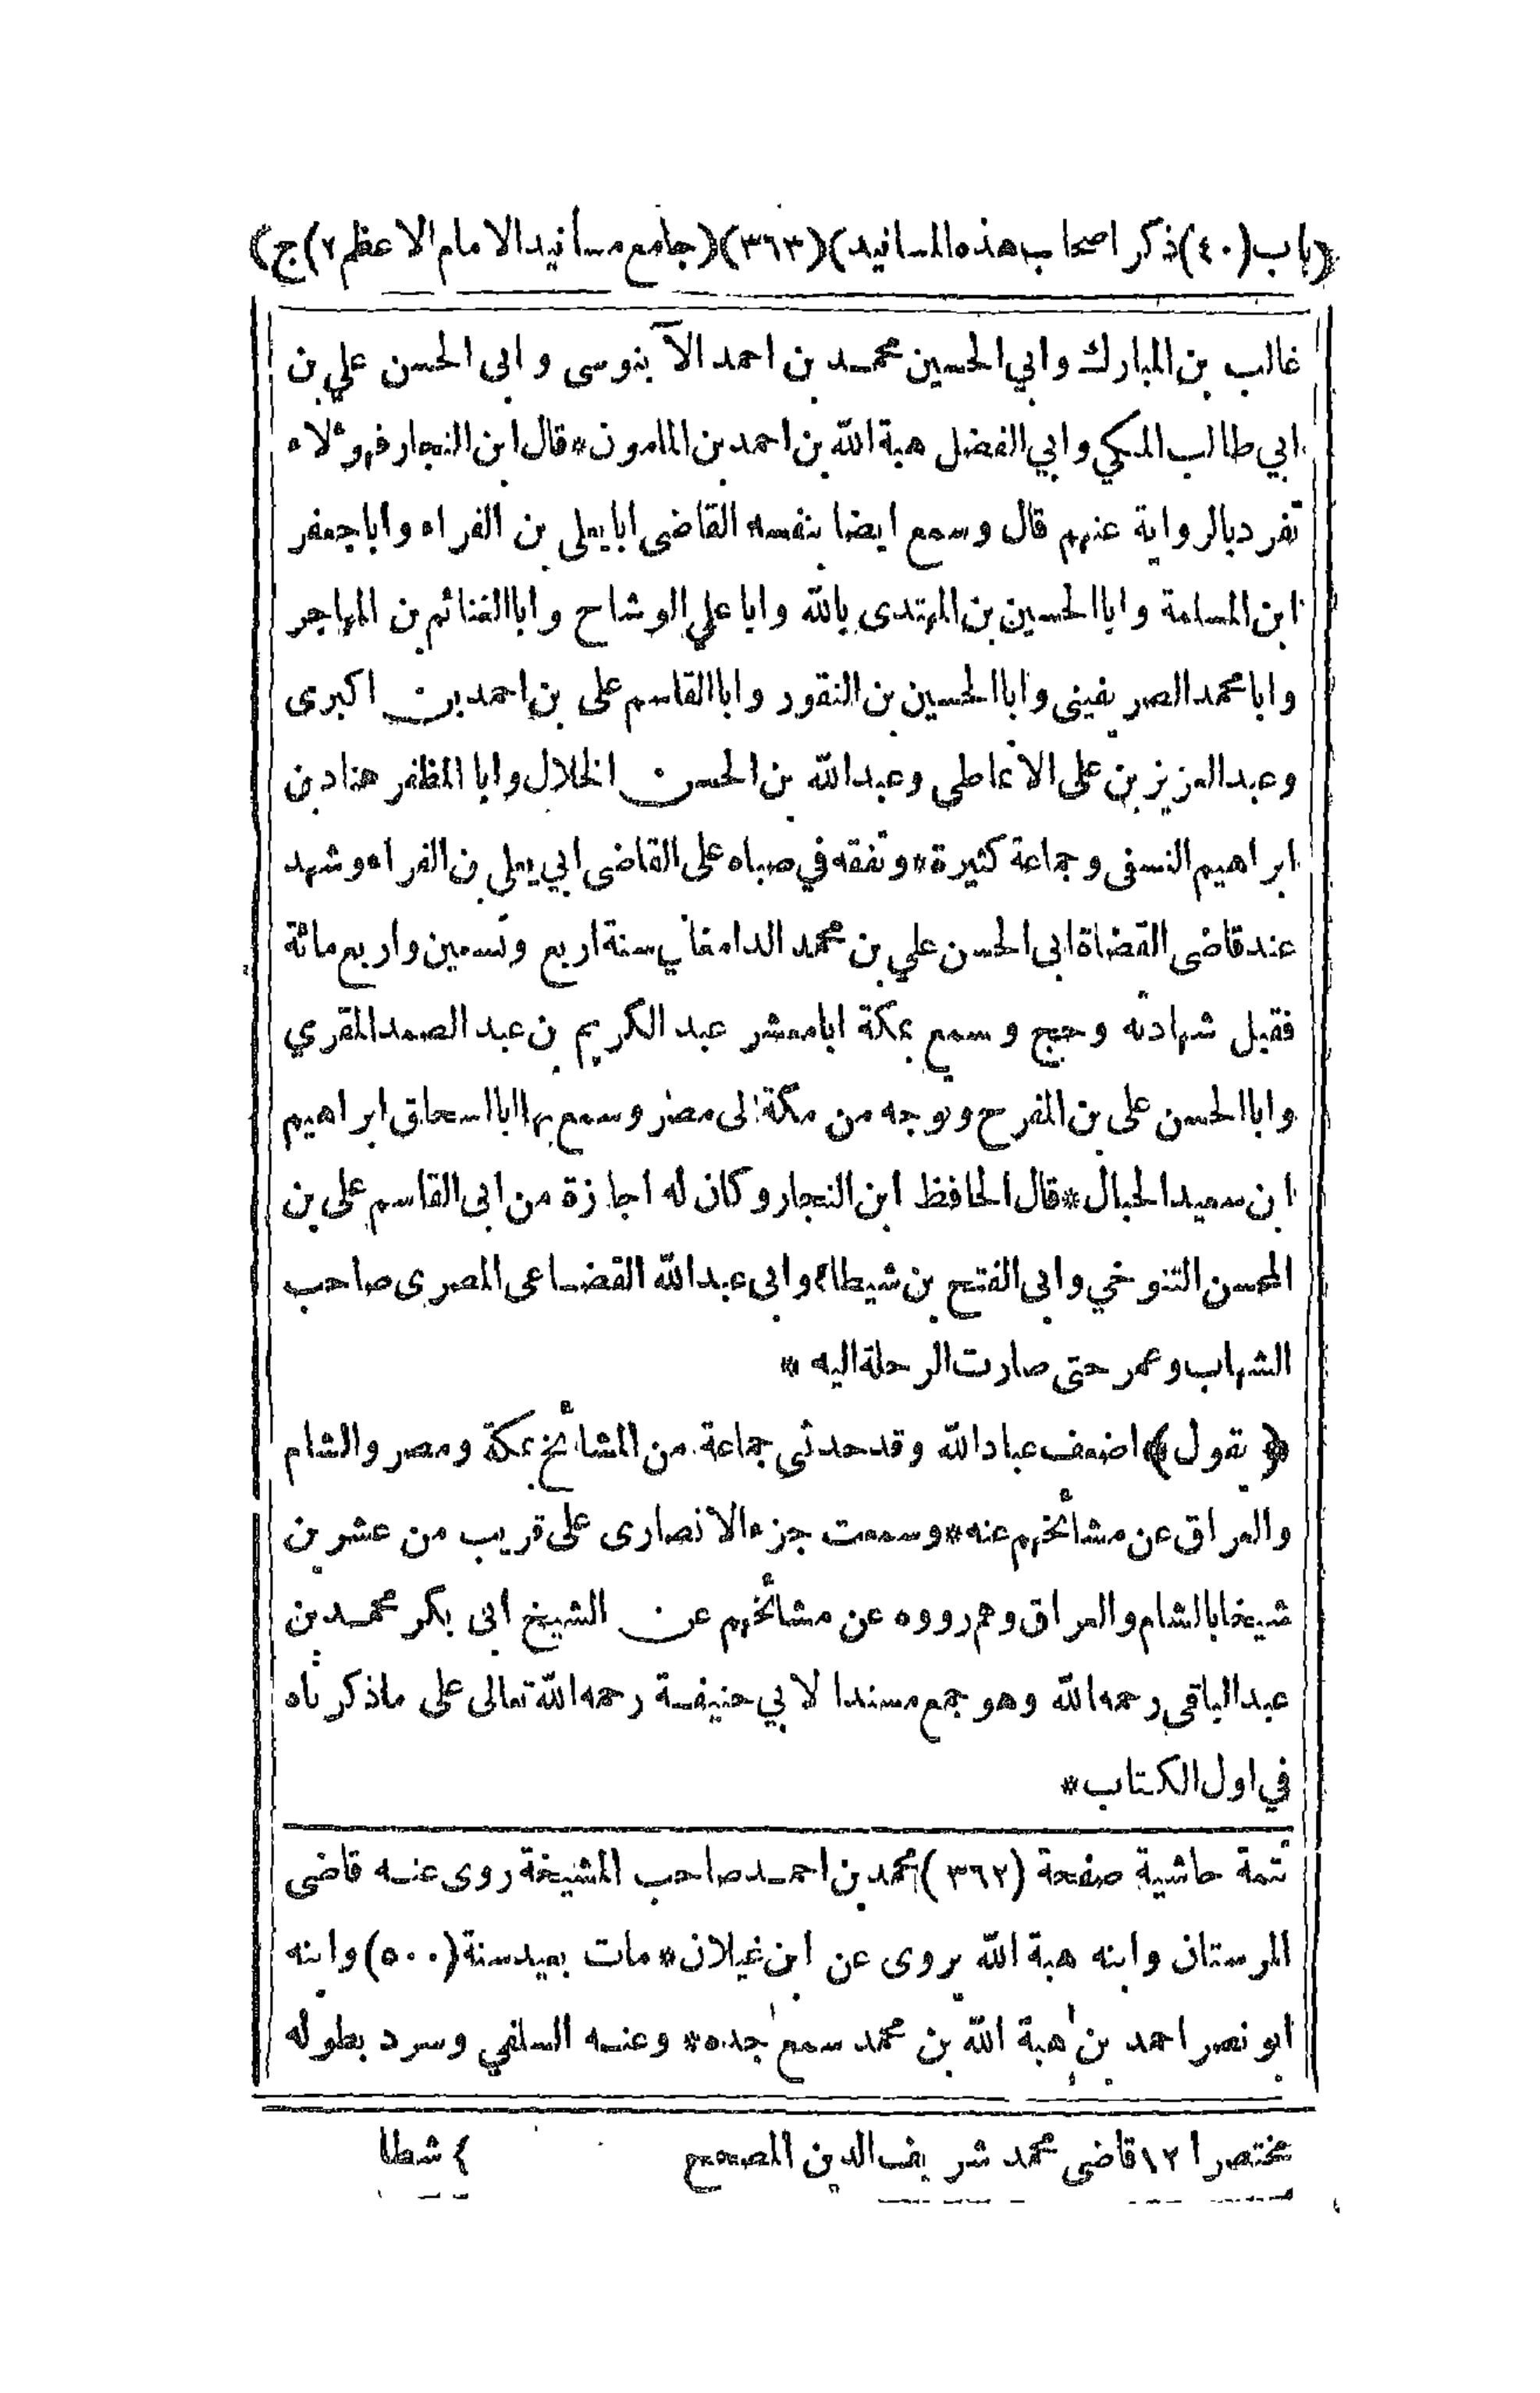 (باب (٤٠) ذكر اصحاب هذه المسانيد) (٣٦٣) (جامع مسانيد الامام الاعظم ٢) ج)
غالب بن المبارك وابي الحسين محمد بن احمد الآبنوسى وابى الحسن علي بن
ابي طالب المكي وابي الفضل هبة الله بن احمد بن المامون * قال ابن النجار فهوئلاء
تفرد بالرواية عنهم قال وسمع ايضا بنفسه القاضى ابا يعلى بن الفراء وابا جعفر
ابن المسلمة وابا الحسين بن المهتدى بالله وابا علي الوشاح وابا الغنائم بن المهاجر
وابا محمد الصريفينى وابا الحسين بن النقور وابا القاسم على بن احمد بن اكبرى
وعبد العزيز بن على الانماطي وعبد الله بن الحسن الخلال وابا المظفر هناد بن
ابراهيم النسفى وجماعة كثيرة * وتفقه في صباه على القاضى ابي يعلى بن الفراء وشهد
عند قاضى القضاة ابى الحسن علي بن محمد الدامغاني سنة اربع وتسعين واربع مائة
فقبل شهادته وحج وسمع بمكة ابا معشر عبد الكريم بن عبد الصمد المقري
وابا الحسن على بن المفرح وتوجه من مكة الى مصر وسمع بها ابا اسحاق ابراهيم
ابن سعيد الحبال * قال الحافظ ابن النجار وكان له اجازة من ابى القاسم على بن
المحسن التنوخي وابى الفتح بن شيطا٤ وابى عبد الله القضاعى المصرى صاحب
الشهاب وعمر حتى صارت الرحلة اليه *
﴿ يقول ﴾ اضعف عباد الله وقد حدثنى جماعة من المشائخ بمكة ومصر والشام
والعراق عن مشائخهم عنه * وسمعت جزء الانصارى على قريب من عشرين
شيخا بالشام والعراق وهم رووه عن مشائخهم عن الشيخ ابى بكر محمد بن
عبد الباقى رحمه الله وهو جمع مسندا لابي حنيفة رحمه الله تعالى على ما ذكرناه
في اول الكتاب *
تتمة حاشية صفحة (٣٦٢) محمد بن احمد صاحب المشيخة روى عنه قاضى
المرستان وابنه هبة الله يروى عن ابن غيلان * مات بعيد سنة (٥٠٠) وابنه
ابو نصر احمد بن هبة الله بن محمد سمع جده * وعنه السلفي وسرد بطوله
مختصرا ١٢ قاضى محمد شريف الدين المصحح ٤ شطا